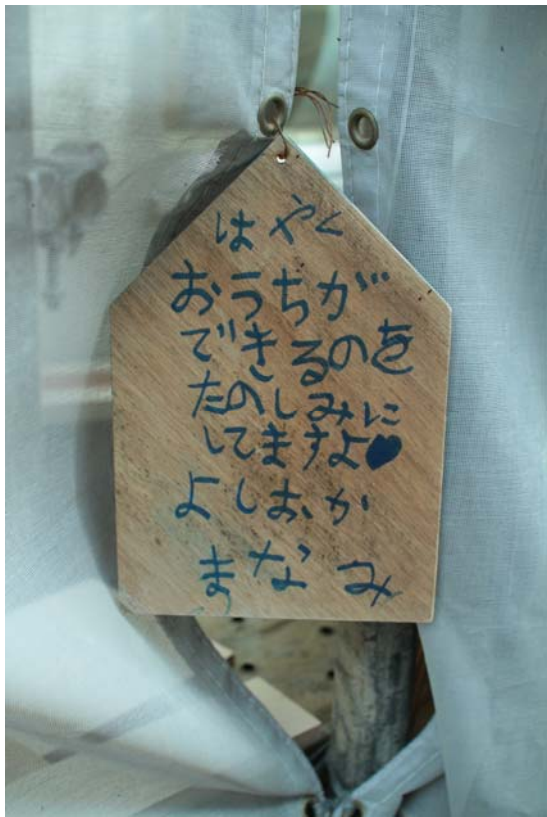 はやく
おうちが
できるのを
たのしみに
してますよ♥
よしおか
まなみ